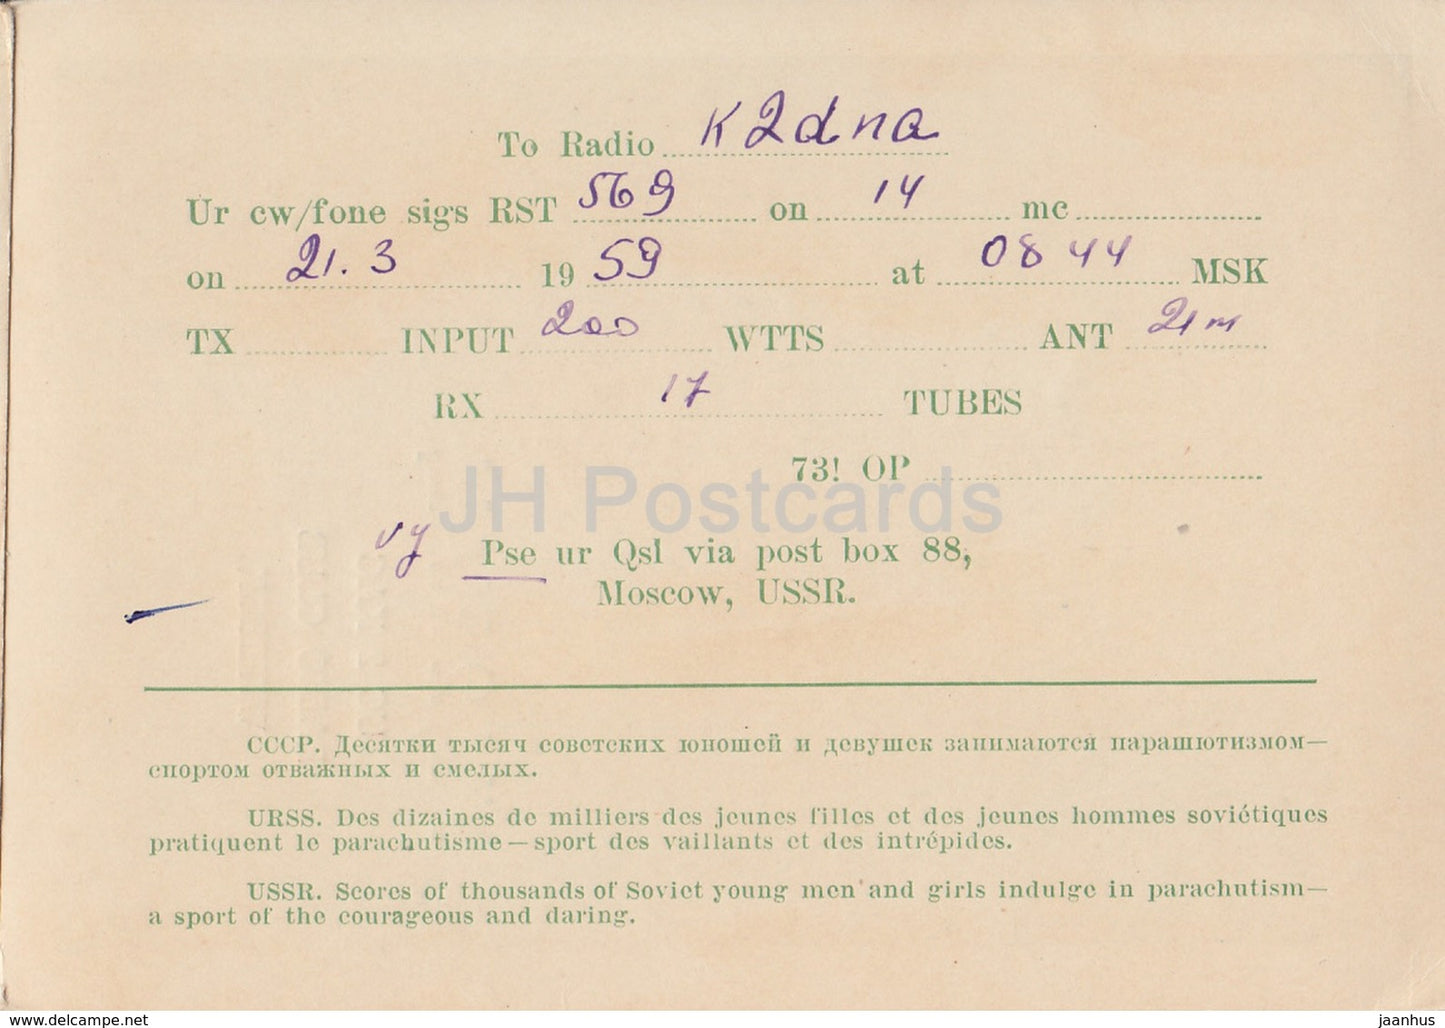 To Radio K2dna
Ur cw/fone sigs RST 569 on 14 mc
on 21.3 19 59 at 0844 MSK
TX INPUT 200 WTTS ANT 21m
RX 17 TUBES
73! OP
JH Postcards
vy Pse ur Qsl via post box 88,
Moscow, USSR.
СССР. Десятки тысяч советских юношей и девушек занимаются парашютизмом—
спортом отважных и смелых.
URSS. Des dizaines de milliers des jeunes filles et des jeunes hommes soviétiques
pratiquent le parachutisme — sport des vaillants et des intrépides.
USSR. Scores of thousands of Soviet young men and girls indulge in parachutism—
a sport of the courageous and daring.
www.delcampe.net
jaanhus